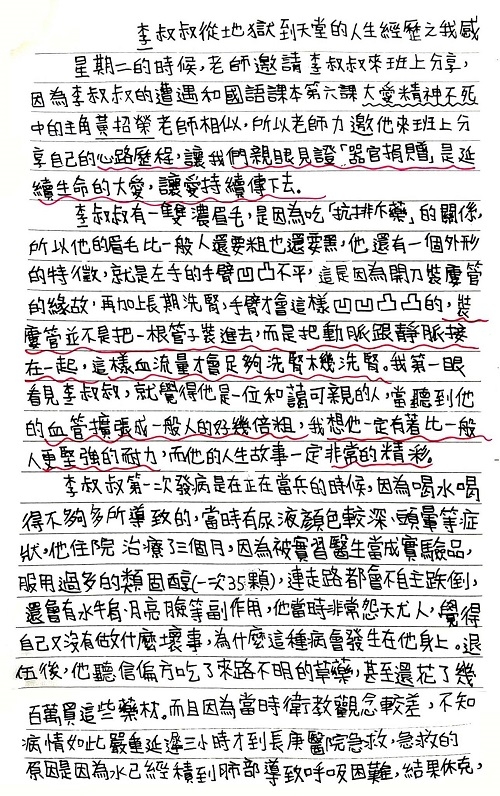 李叔叔從地獄到天堂的人生經歷之我感
星期二的時候,老師邀請李叔叔來班上分享,
因為李叔叔的遭遇和國語課本第六課大愛精神不死
中的主角黃招榮老師相似,所以老師力邀他來班上分
享自己的心路歷程,讓我們親眼見證「器官捐贈」是延
續生命的大愛,讓愛持續傳下去。
李叔叔有一雙濃眉毛,是因為吃「抗排斥藥」的關係,
所以他的眉毛比一般人還要粗也還要黑,他還有一個外形
的特徵,就是左手的手臂凹凸不平,這是因為開刀裝廔管
的緣故,再加上長期洗腎,手臂才會這樣凹凹凸凸的,裝
廔管並不是把一根管子裝進去,而是把動脈跟靜脈接
在一起,這樣血流量才會足夠洗腎機洗腎。我第一眼
看見李叔叔,就覺得他是一位和藹可親的人,當聽到他
的血管擴張成一般人的好幾倍粗,我想他一定有著比一般
人更堅強的耐力,而他的人生故事一定非常的精彩。
李叔叔第一次發病是在正在當兵的時候,因為喝水喝
得不夠多所導致的,當時有尿液顏色較深、頭暈等症
狀,他住院治療了三個月,因為被實習醫生當成實驗品,
服用過多的類固醇(一次35顆),連走路都會不自主跌倒,
還會有水牛肩、月亮臉等副作用,他當時非常怨天尤人,覺得
自己又沒有做什麼壞事,為什麼這種病會發生在他身上。退
伍後,他聽信偏方吃了來路不明的草藥,甚至還花了幾
百萬買這些藥材。而且因為當時衛教觀念較差,不知
病情如此嚴重延遲三小時才到長庚醫院急救,急救的
原因是因為水已經積到肺部導致呼吸困難,結果休克,